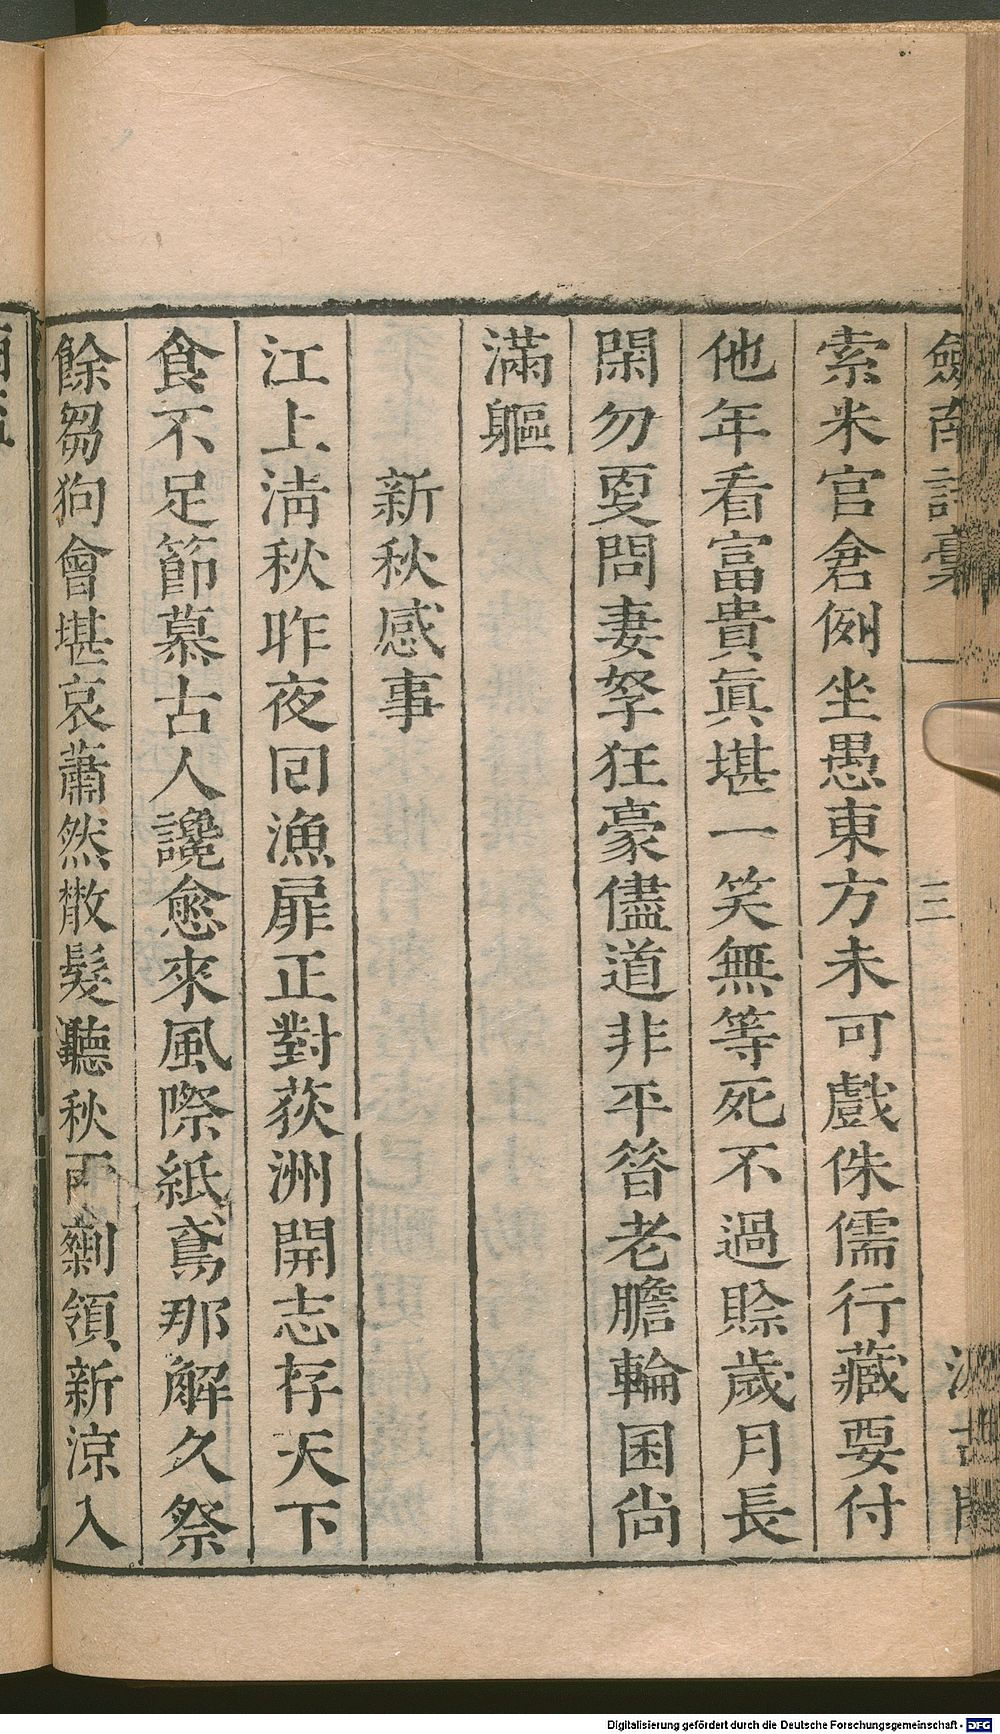 劒南詩稾
三
索米官倉例坐愚東方未可戲侏儒行藏要付
他年看富貴眞堪一笑無等死不過賒歲月長
閑勿㪅問妻孥狂豪儘道非平昝老膽輪囷尙
滿軀
新秋感事
江上淸秋昨夜囘漁扉正對荻洲開志存天下
食不足節慕古人讒愈來風際紙鳶那解久祭
餘芻狗會堪哀蕭然散髮聽秋雨剩領新涼入
Digitalisierung gefördert durch die Deutsche Forschungsgemeinschaft - DFG